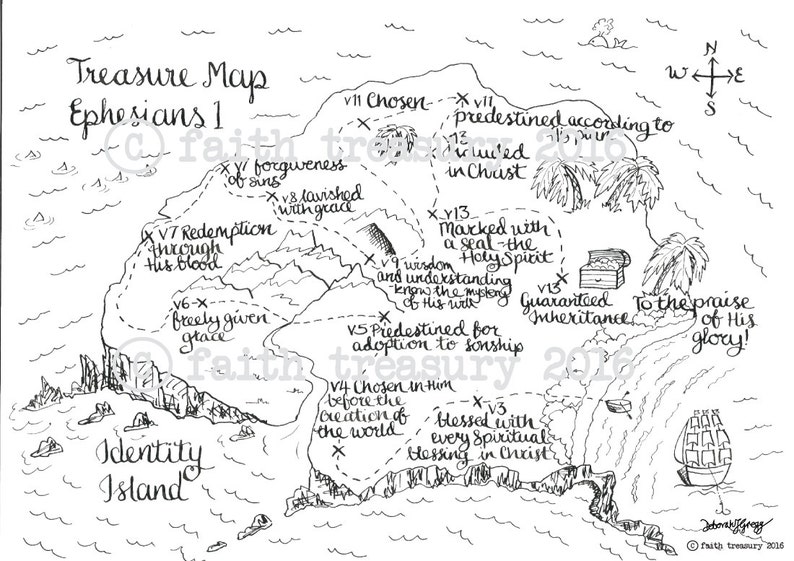 Treasure Map
Ephesians 1
N
W
E
S
v11 Chosen
v11
predestined according to
v13
included
in Christ
© faith treasury 2016
v7 forgiveness
of sins
v8 lavished
with grace
v7 Redemption
through
His blood
v13
Marked with
a seal - the
Holy Spirit
v9 wisdom
and understanding
- know the mystery
of His will
v13
Guaranteed
Inheritance
To the praise
of His
glory!
v6
freely given
grace
v.5 Predestined for
adoption to sonship
© faith treasury 2016
v4 Chosen in Him
before the
creation of
the world
v3
blessed with
every Spiritual
blessing in Christ
Identity
Island
Deborah J Gregg
© faith treasury 2016